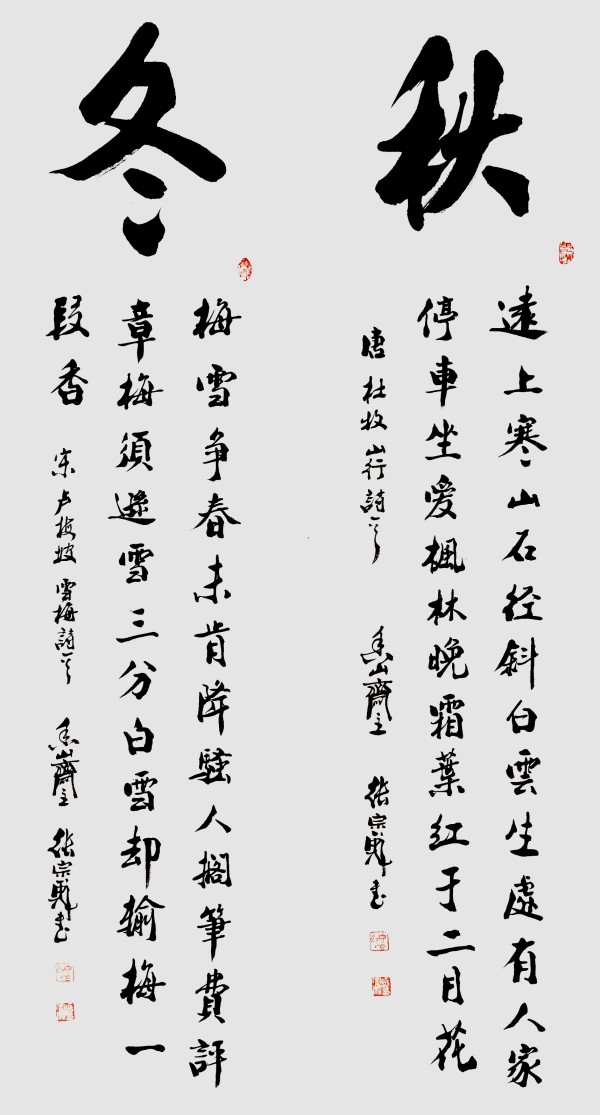 秋
遠上寒山石径斜白雲生處有人家
停車坐爱楓林晚霜葉红于二月花
唐杜牧山行詩一首 香山齋主 张宗书
冬
梅雪争春未肯降騷人搁筆費評
章梅須遜雪三分白雪却输梅一
段香 宋卢梅坡雪梅詩一首 香山齋主 张宗书